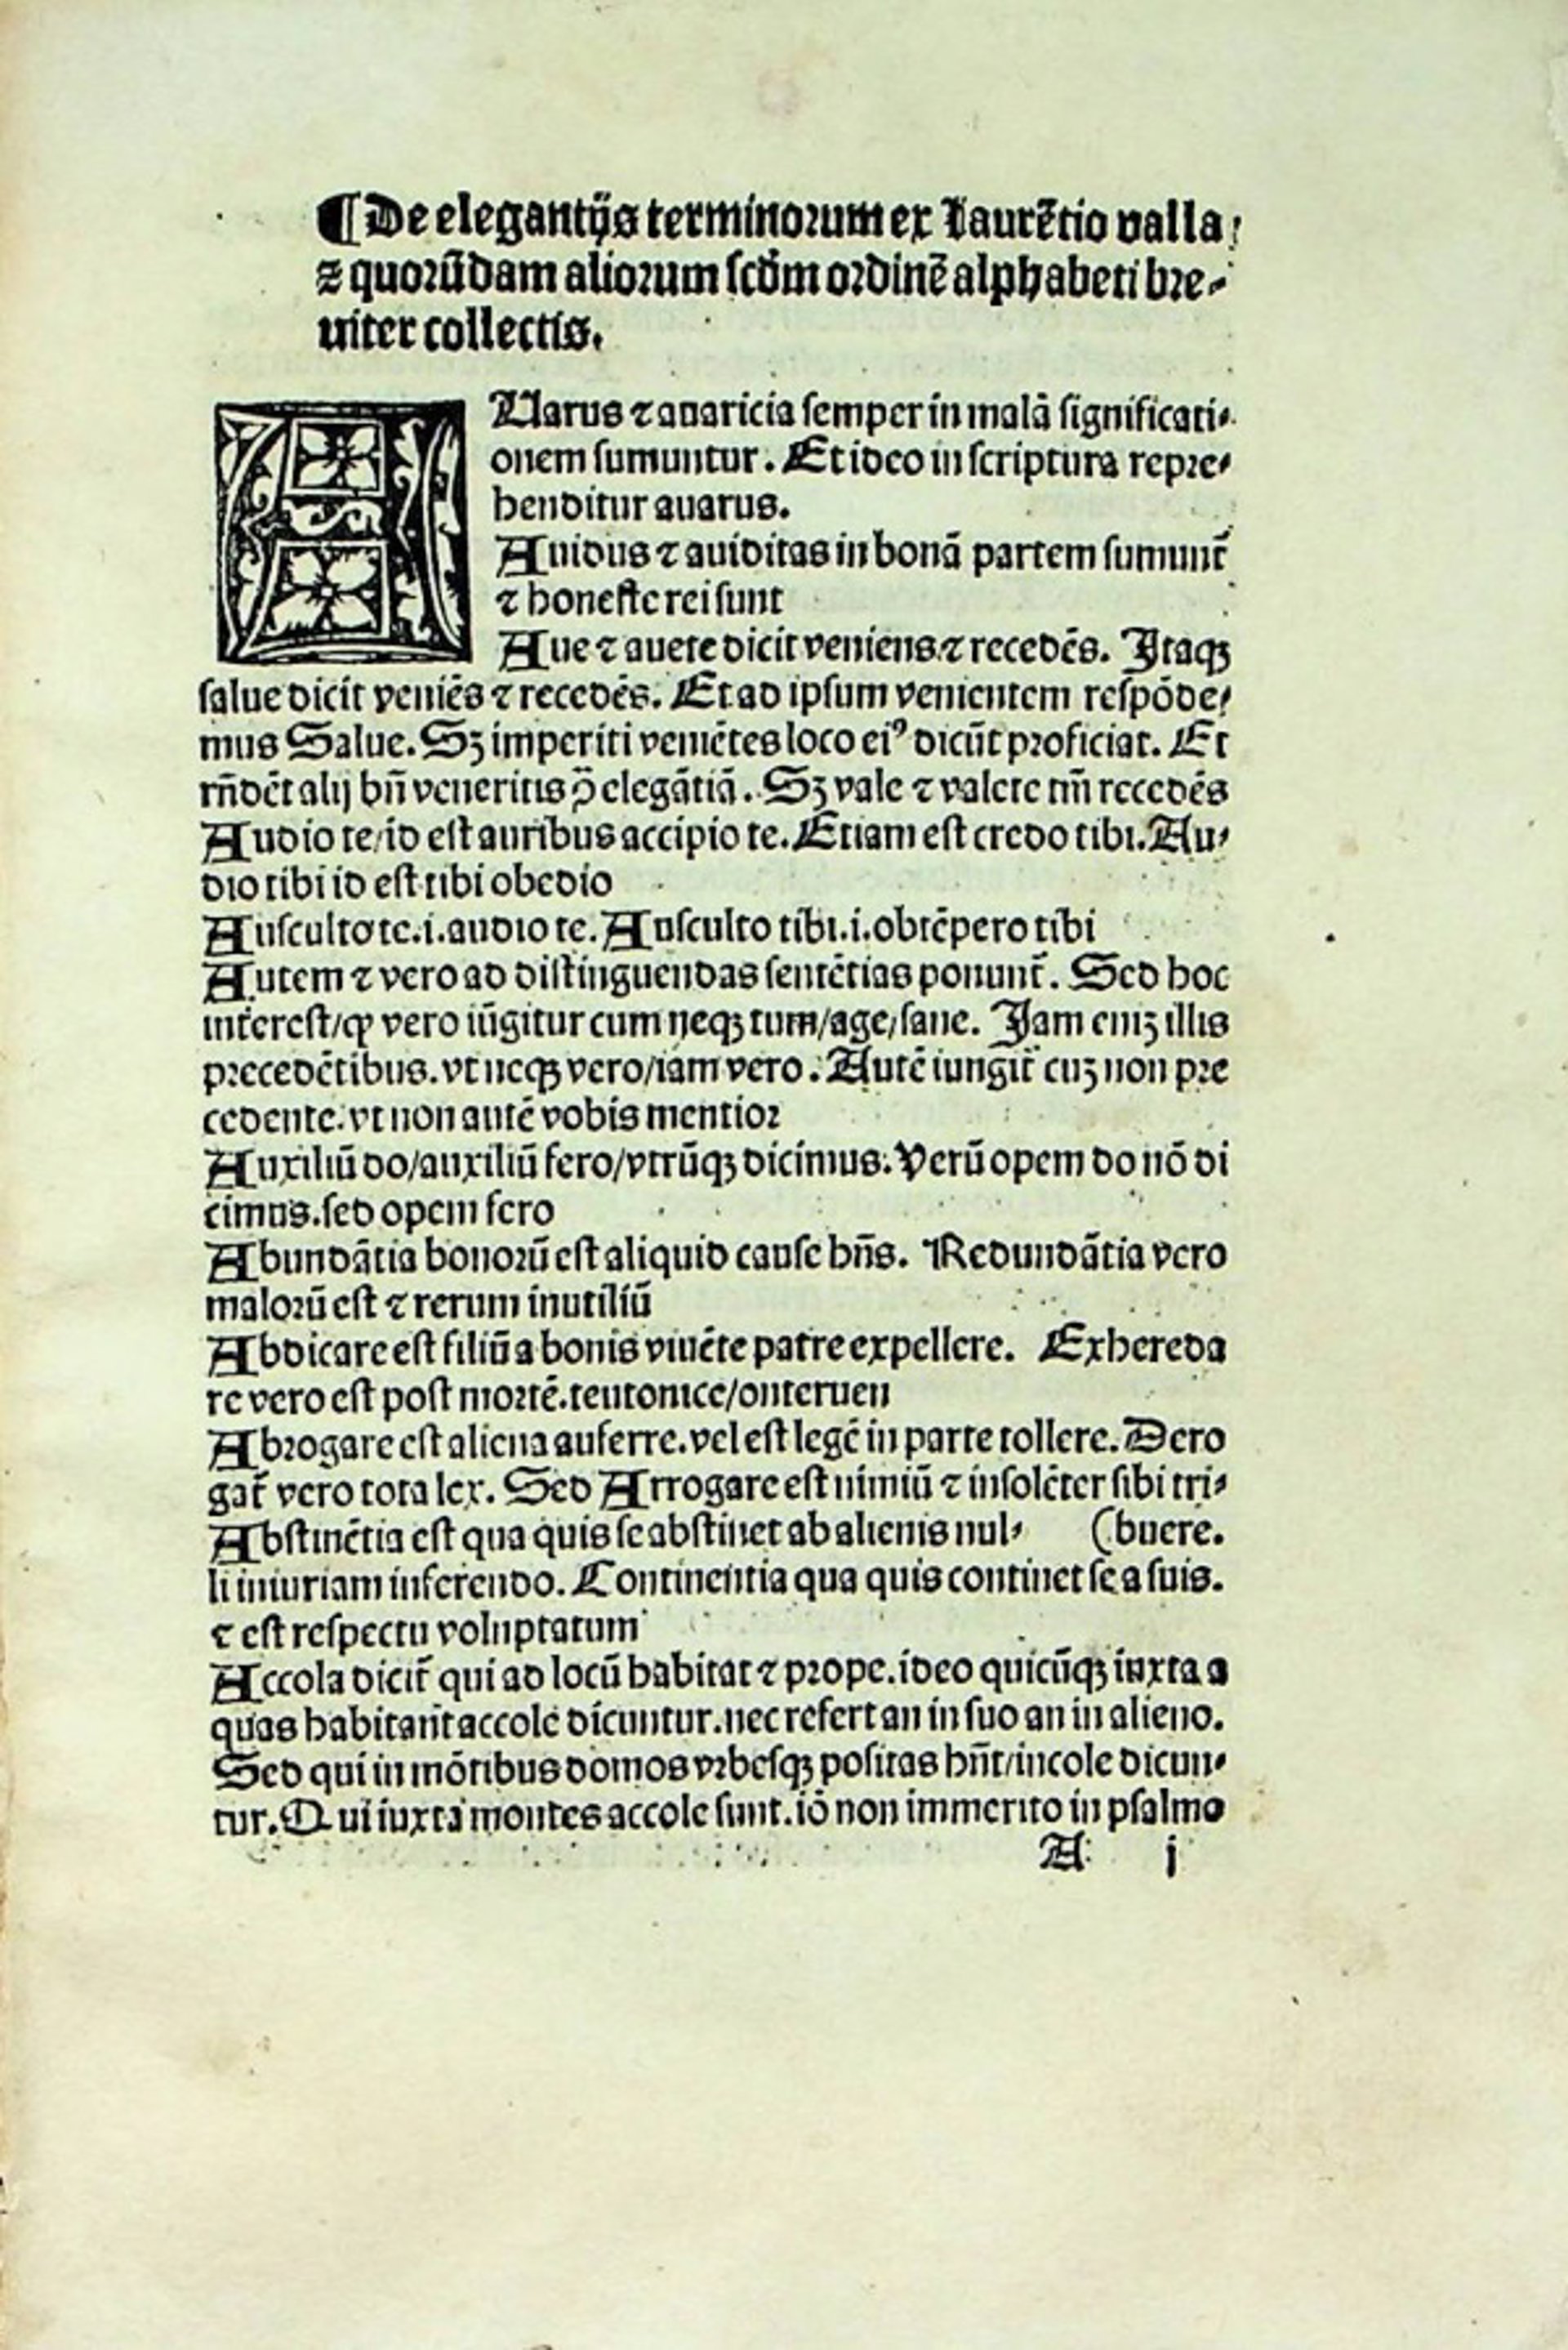 ¶De elegantijs terminoꝛum ex Laurētio valla:
⁊ quoꝛūdam alioꝛum ſcd̄m oꝛdinē alphabeti bꝛe⸗
uiter collectis.
AUarus ⁊ auaricia ſemper in malā ſignificati⸗
onem ſumuntur. Et ideo in ſcriptura repꝛe⸗
henditur auarus.
Auidus ⁊ auiditas in bonā partem ſumunt̄
⁊ honeſte rei ſunt
Aue ⁊ auete dicit veniens ⁊ recedēs. Itaqꝫ
ſalue dicit veniēs ⁊ recedēs. Et ad ipſum venientem reſpōde⸗
mus Salue. Sꝫ imperiti veniētes loco eiꝰ dicūt pꝛoficiat. Et
rn̄dēt alij bn̄ veneritis ꝓ̄ elegātiā. Sꝫ vale ⁊ valete tm̄ recedēs
Audio te/id eſt auribus accipio te. Etiam eſt credo tibi. Au⸗
dio tibi id eſt tibi obedio
Auſculto te.i.audio te. Auſculto tibi.i.obtēpero tibi
Autem ⁊ vero ad diſtinguendas ſentētias ponunt̄. Sed hoc
intereſt/ꝙ vero iūgitur cum neqꝫ tum/age/ſane. Jam eniꝫ illis
pꝛecedētibus. vt neqꝫ vero/iam vero. Autē iungit̄ cuꝫ non pꝛe
cedente. vt non autē vobis mentioꝛ
Auxiliū do/auxiliū fero/vtrūqꝫ dicimus. Verū opem do nō di
cimus. ſed opem fero
Abundātia bonoꝛū eſt aliquid cauſe bn̄s. Redundātia vero
maloꝛū eſt ⁊ rerum inutiliū
Abdicare eſt filiū a bonis viuēte patre expellere. Exhereda
re vero eſt poſt moꝛtē. teutonice/onteruen
Abꝛogare eſt aliena auferre. vel eſt legē in parte tollere. Dero
gat̄ vero tota lex. Sed Arrogare eſt nimiū ⁊ inſolēter ſibi tri⸗
Abſtinētia eſt qua quis ſe abſtinet ab alienis nul⸗ (buere.
li iniuriam inferendo. Continentia qua quis continet ſe a ſuis.
⁊ eſt reſpectu voluptatum
Accola dicit̄ qui ad locū habitat ⁊ pꝛope. ideo quicūqꝫ iuxta a
quas habitant accole dicuntur. nec refert an in ſuo an in alieno.
Sed qui in mōtibus domos vꝛbeſqꝫ poſitas hn̄t/incole dicun⸗
tur. Qui iuxta montes accole ſunt. iō non immerito in pſalmo
A j